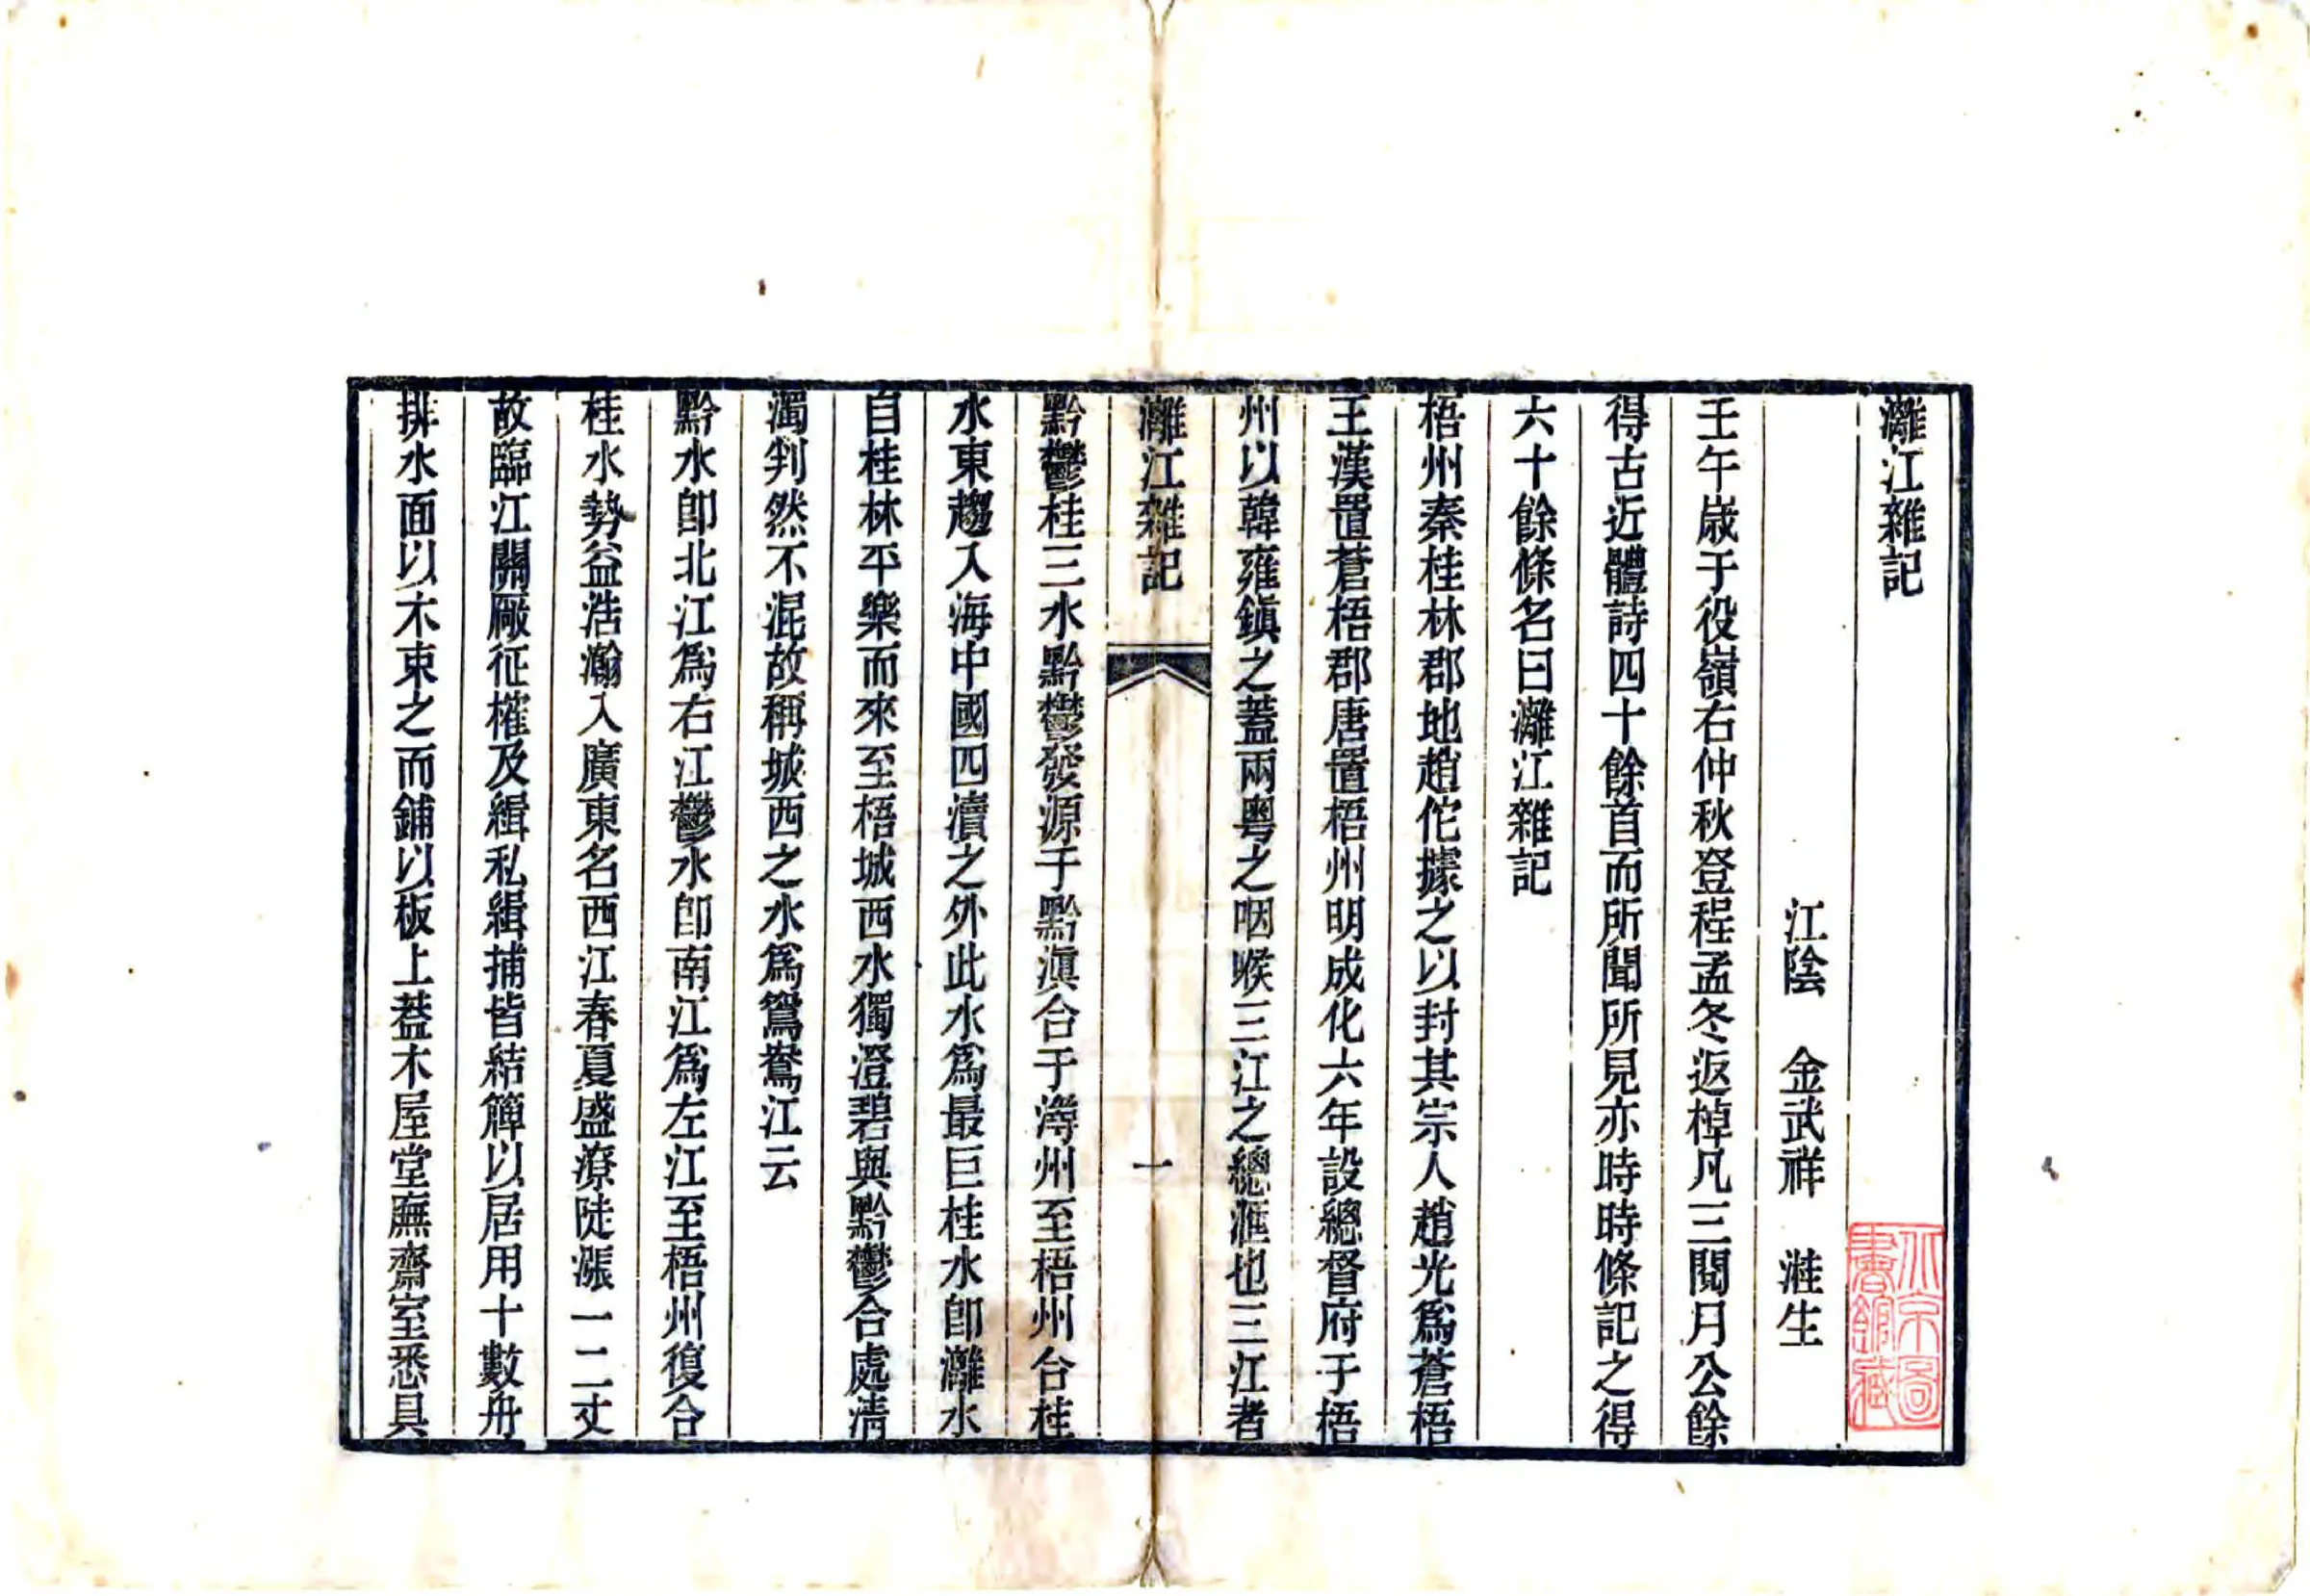 灕江雜記
江陰　金武祥　溎生
壬午歲于役嶺右仲秋登程孟冬返棹凡三閱月公餘
得古近體詩四十餘首而所聞所見亦時時條記之得
六十餘條名曰灕江雜記
梧州秦桂林郡地趙佗據之以封其宗人趙光爲蒼梧
王漢置蒼梧郡唐置梧州明成化六年設總督府于梧
州以韓雍鎮之蓋兩粵之咽喉三江之總滙也三江者
灕江雜記
一
黔鬱桂三水黔鬱發源于黔滇合于潯州至梧州合桂
水東趨入海中國四瀆之外此水爲最巨桂水卽灕水
自桂林平樂而來至梧城西水獨澄碧與黔鬱合處清
濁判然不混故稱城西之水爲鴛鴦江云
黔水卽北江爲右江鬱水卽南江爲左江至梧州復合
桂水勢益浩瀚入廣東名西江春夏盛潦陡漲一二丈
故臨江關廠征榷及緝私緝捕皆結簰以居用十數舟
排水面以木束之而鋪以板上葢木屋堂廡齋室悉具
北京圖書館藏